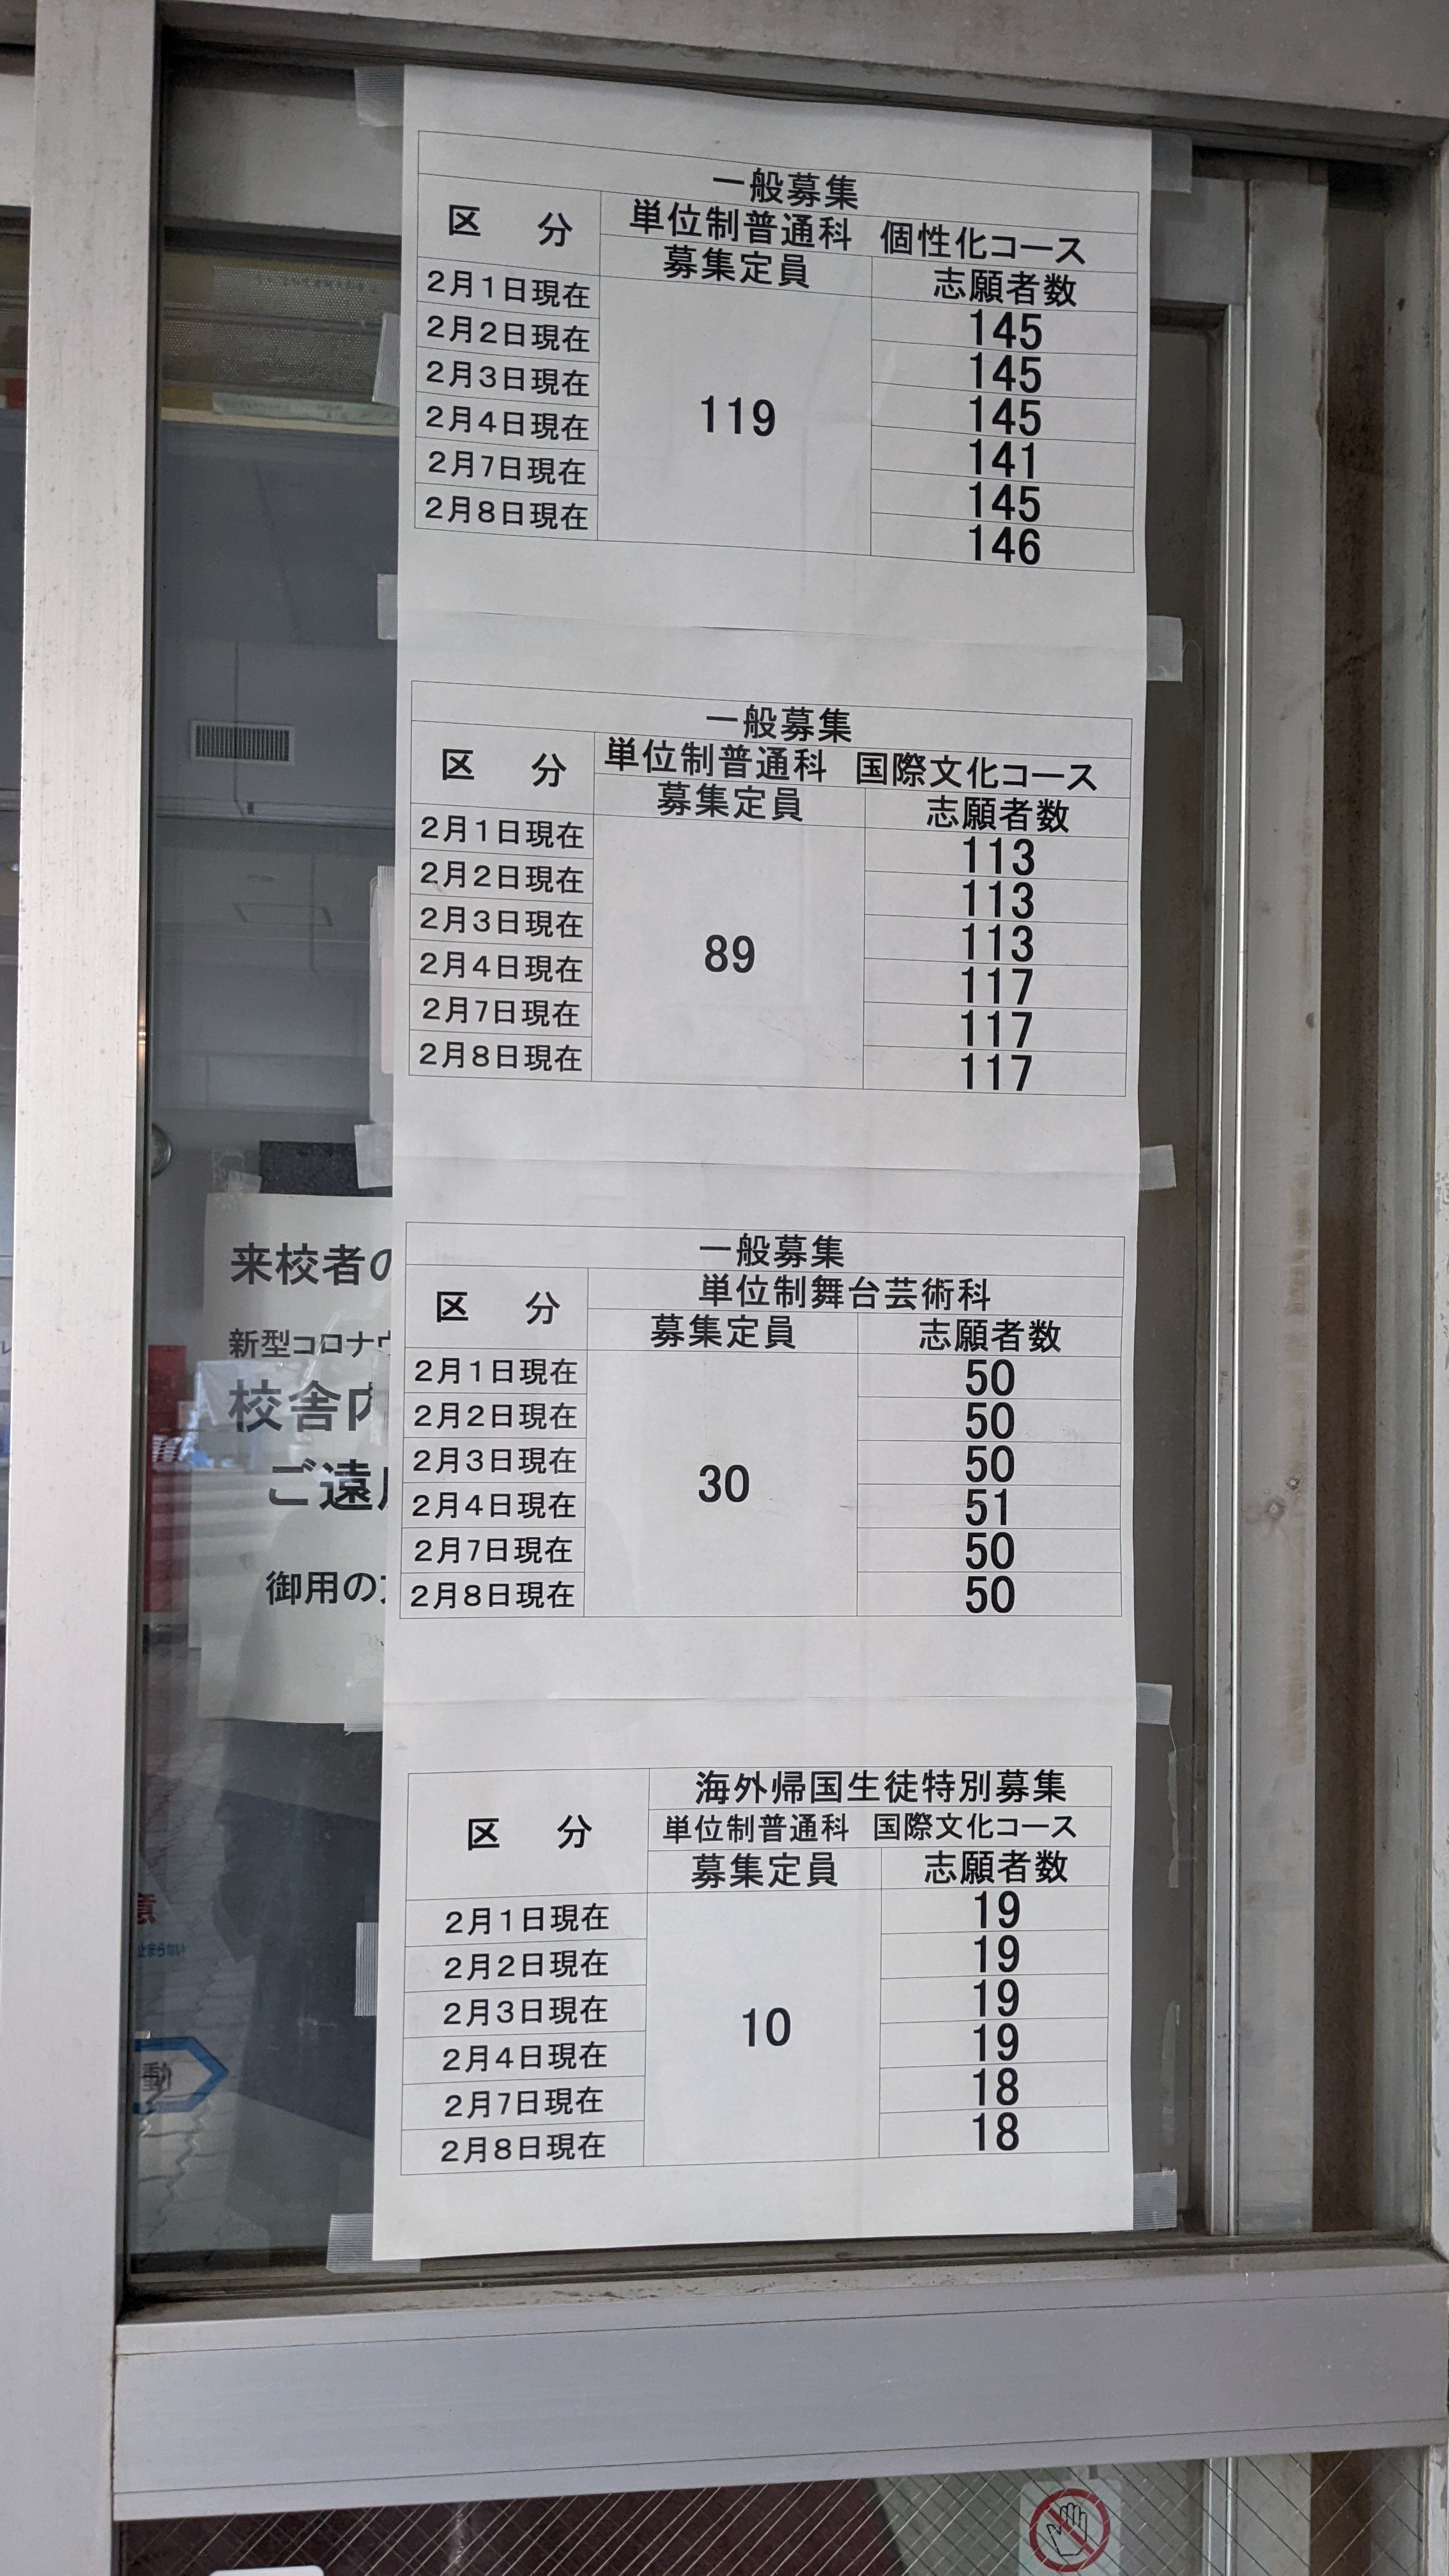 一般募集
区 分 単位制普通科 個性化コース
募集定員 志願者数
2月1日現在 119 145
2月2日現在 145
2月3日現在 145
2月4日現在 141
2月7日現在 145
2月8日現在 146
一般募集
区 分 単位制普通科 国際文化コース
募集定員 志願者数
2月1日現在 89 113
2月2日現在 113
2月3日現在 113
2月4日現在 117
2月7日現在 117
2月8日現在 117
一般募集
区 分 単位制舞台芸術科
募集定員 志願者数
2月1日現在 30 50
2月2日現在 50
2月3日現在 50
2月4日現在 51
2月7日現在 50
2月8日現在 50
海外帰国生徒特別募集
区 分 単位制普通科 国際文化コース
募集定員 志願者数
2月1日現在 10 19
2月2日現在 19
2月3日現在 19
2月4日現在 19
2月7日現在 18
2月8日現在 18
来校者の
新型コロナウ
校舎内
ご遠
御用の
意
止まらない
動